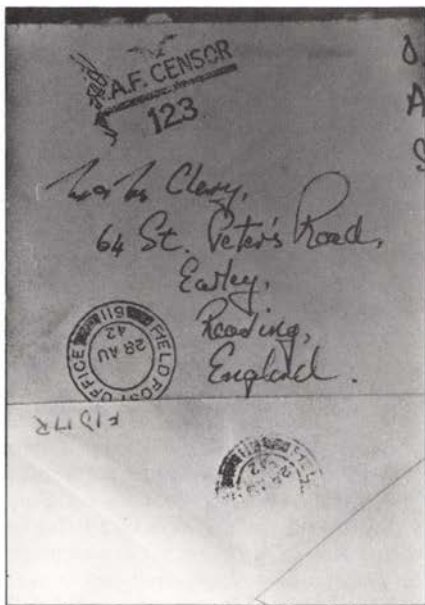 A.F. CENSOR
123
O.
A
S
Clery,
64 St. Peter's Road,
Earley,
Reading,
England.
FIELD POST OFFICE 119
28 AU
42